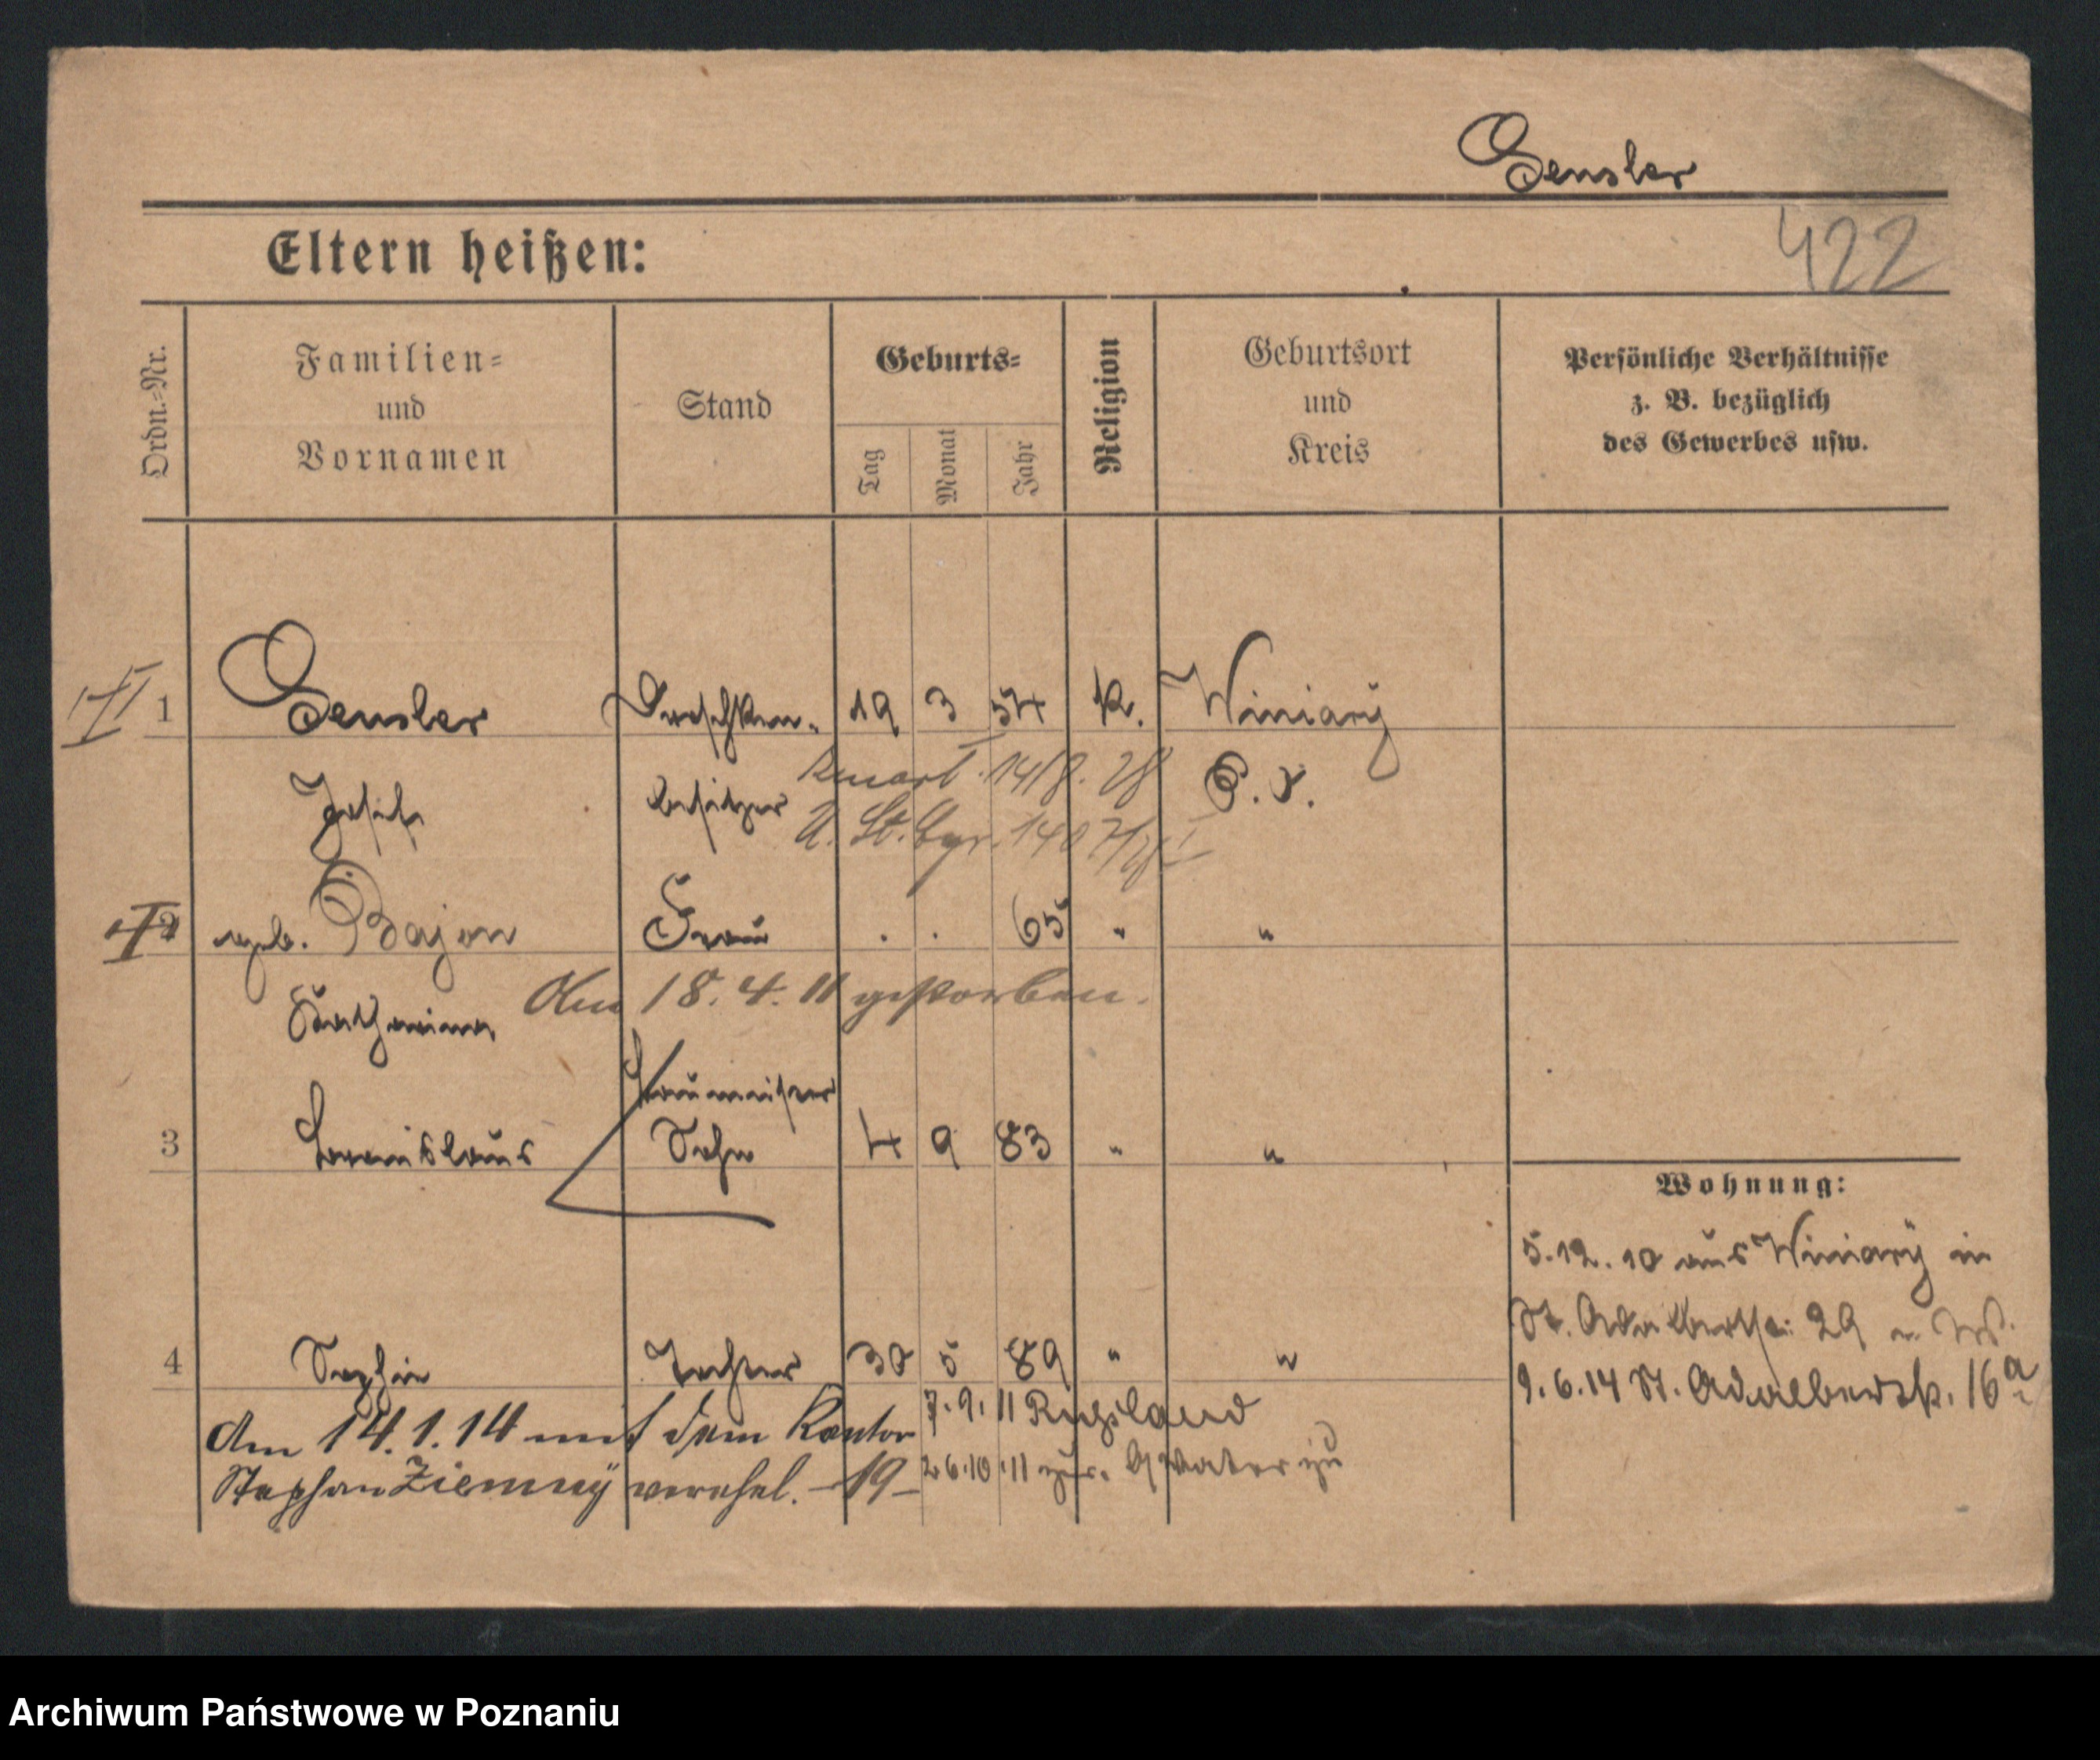 Gensler
Eltern heißen:
422
Ordn.-Nr.
Familien-
und
Vornamen
Stand
Geburts-
Tag
Monat
Jahr
Religion
Geburtsort
und
Kreis
Persönliche Verhältnisse
z. B. bezüglich
des Gewerbes usw.
1 Gensler 19 3 54 K. Winiary
Josef besitzer P. O.
2 geb. Bajon Frau . . 65 " "
Katharina Am 18.4.11 gestorben.
3 Stanislaus Sohn 4 9 83 " "
4 Sophie Tochter 30 5 89 " "
7.9.11 Russland
Am 14.1.14 mit dem Kantor
Stephan Ziemny verehel. -19-
26.10.11 zur. Vater zu
Wohnung:
5.12.10 aus Winiary in
St. Adalbertstr. 29
9.6.14 St. Adalbertstr. 16a
Archiwum Państwowe w Poznaniu